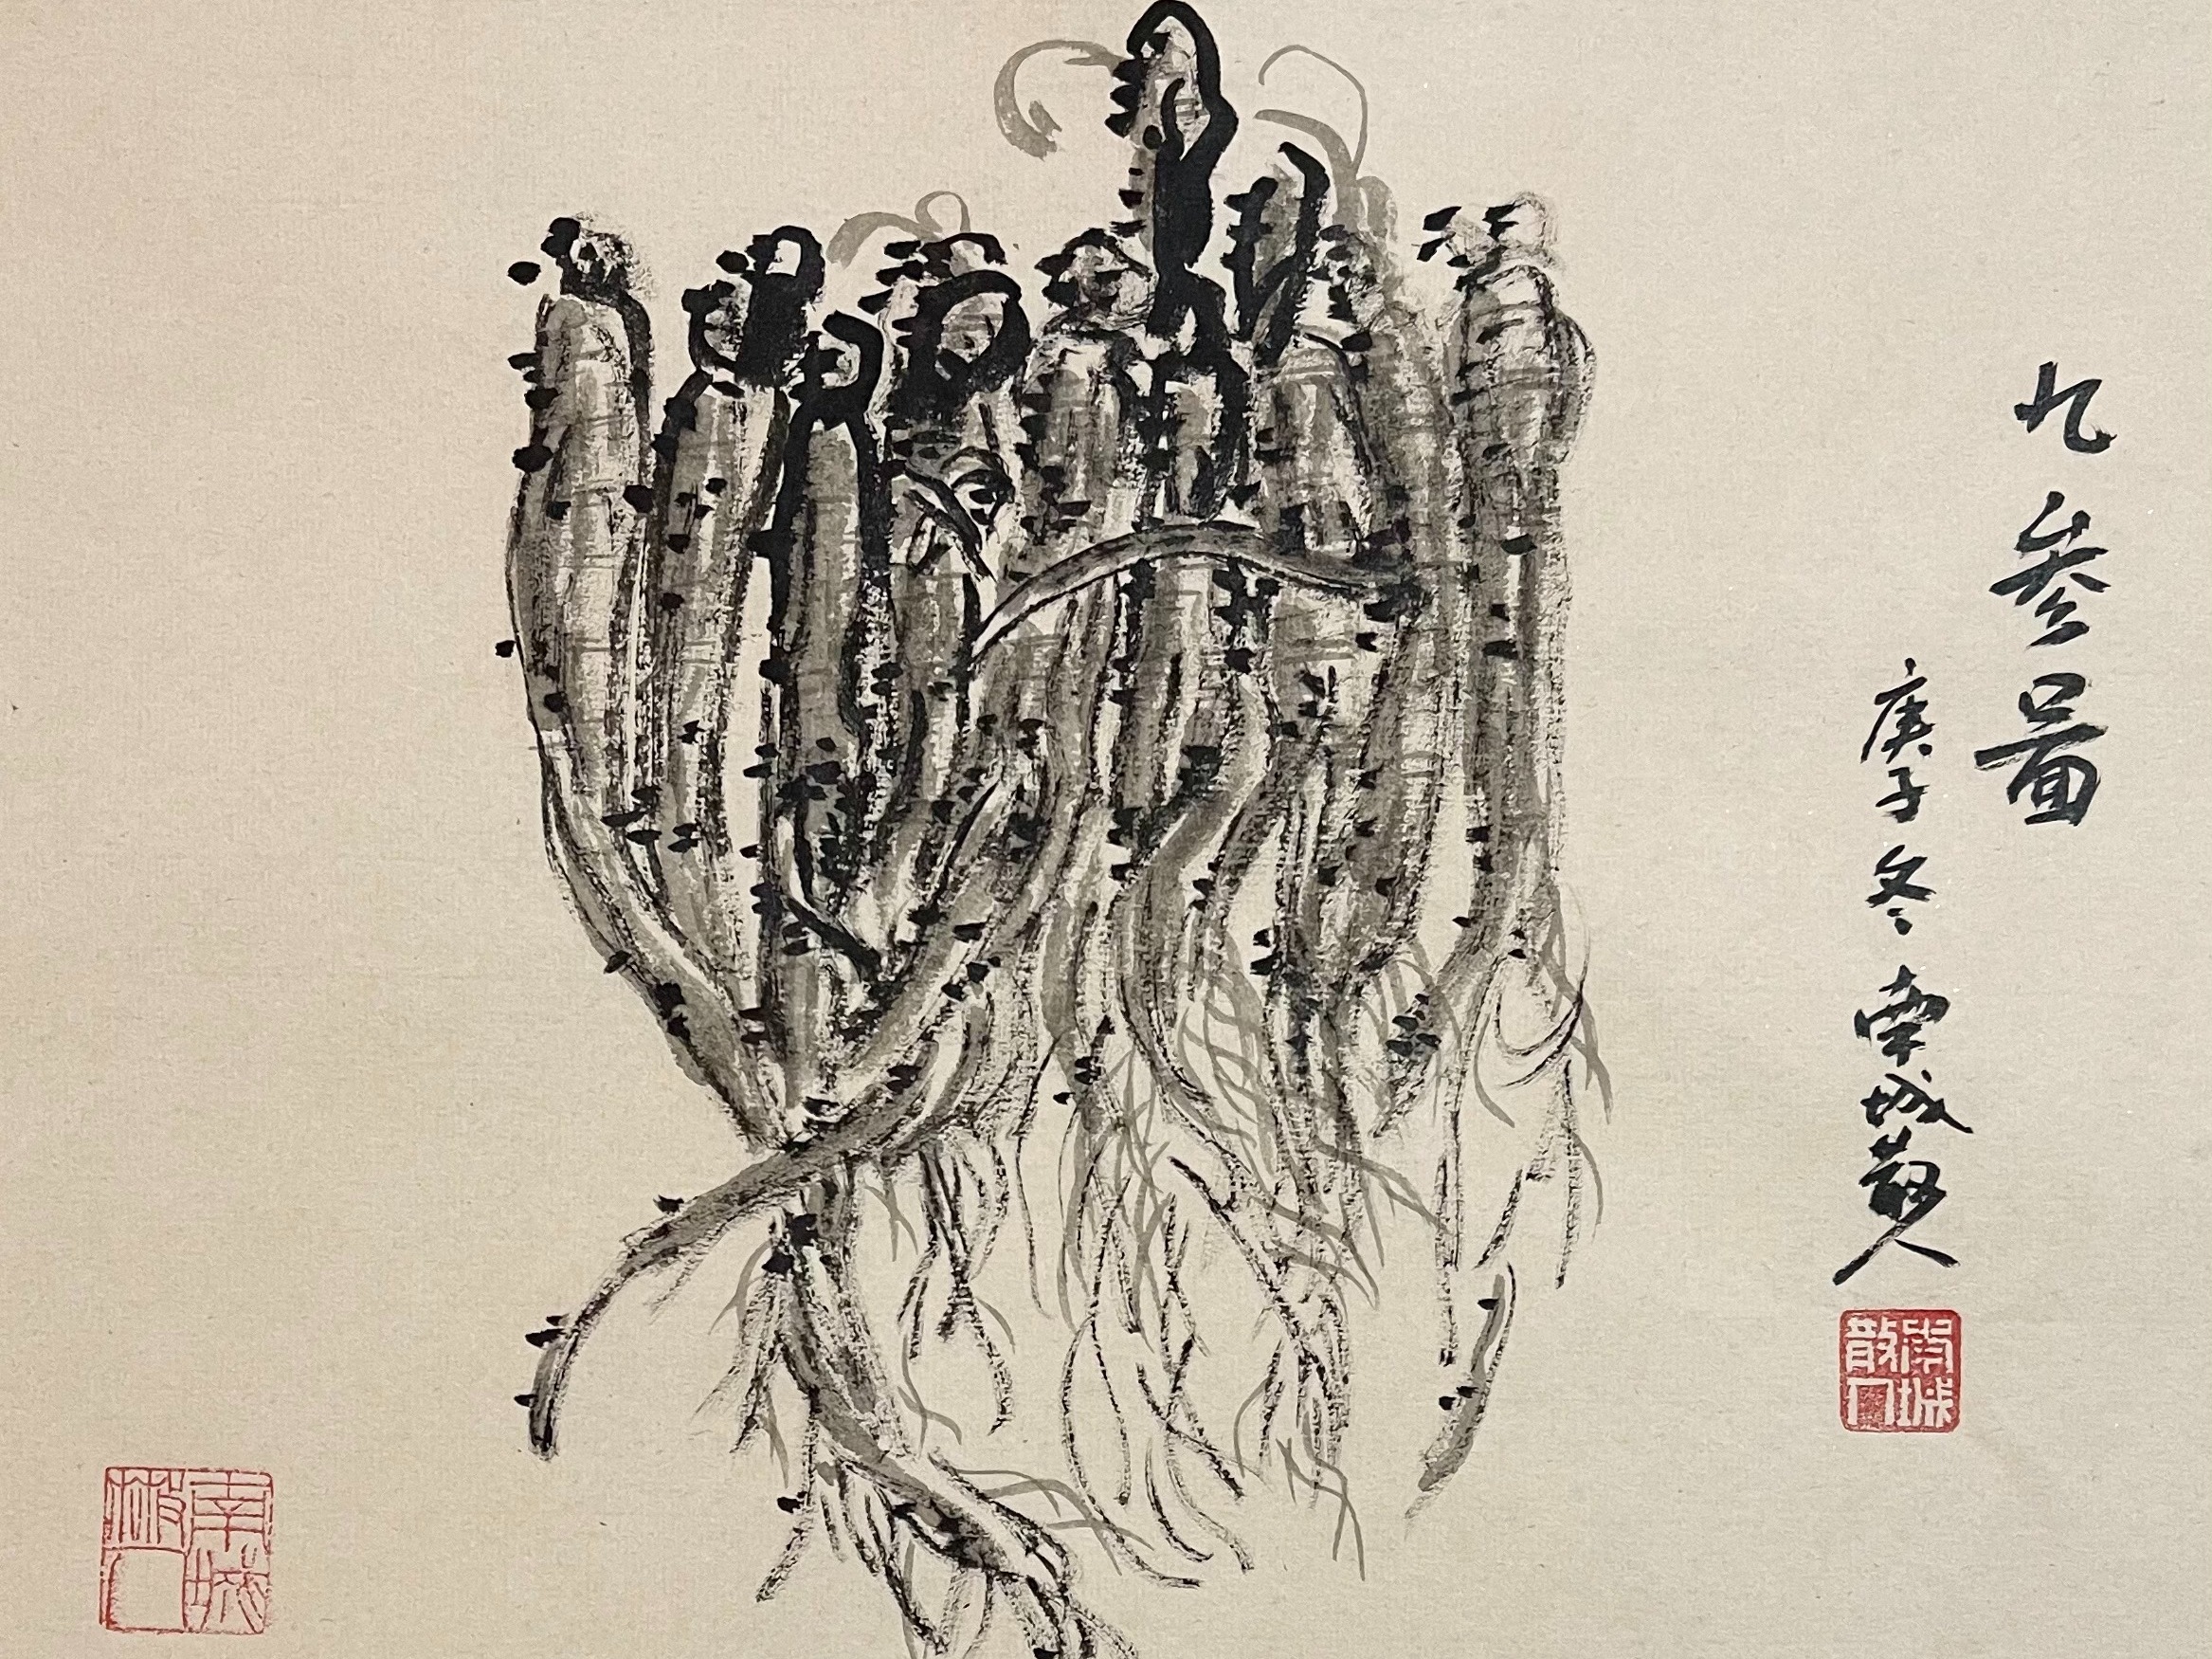 九参啚
庚子冬 南城散人
南城散人
南城散人